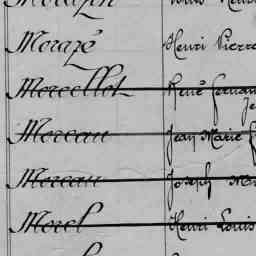 Morazé Henri Pierre
Morcellot René Fernan
Je
Moreau Jean Marie F
Moreau Joseph Ma
Morel Henri Louis